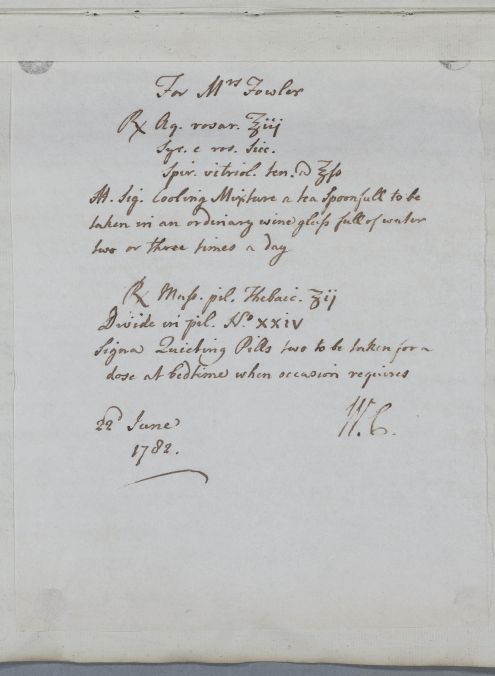 For Mrs Fowler
℞ Aq. rosar. ℥iij
Syr. e ros. sicc.
Spir. vitriol. ten. a ℥ſs
M. Sig. Cooling Mixture a tea Spoonfull to be
taken in an ordinary wine glaſs full of water
two or three times a day
℞ Maſs. pil. Thebaic. ʒij
Divide in pil. No. xxiv
Signa Quieting Pills two to be taken for a
dose at bedtime when occasion requires
22d June
1782.
W.C.